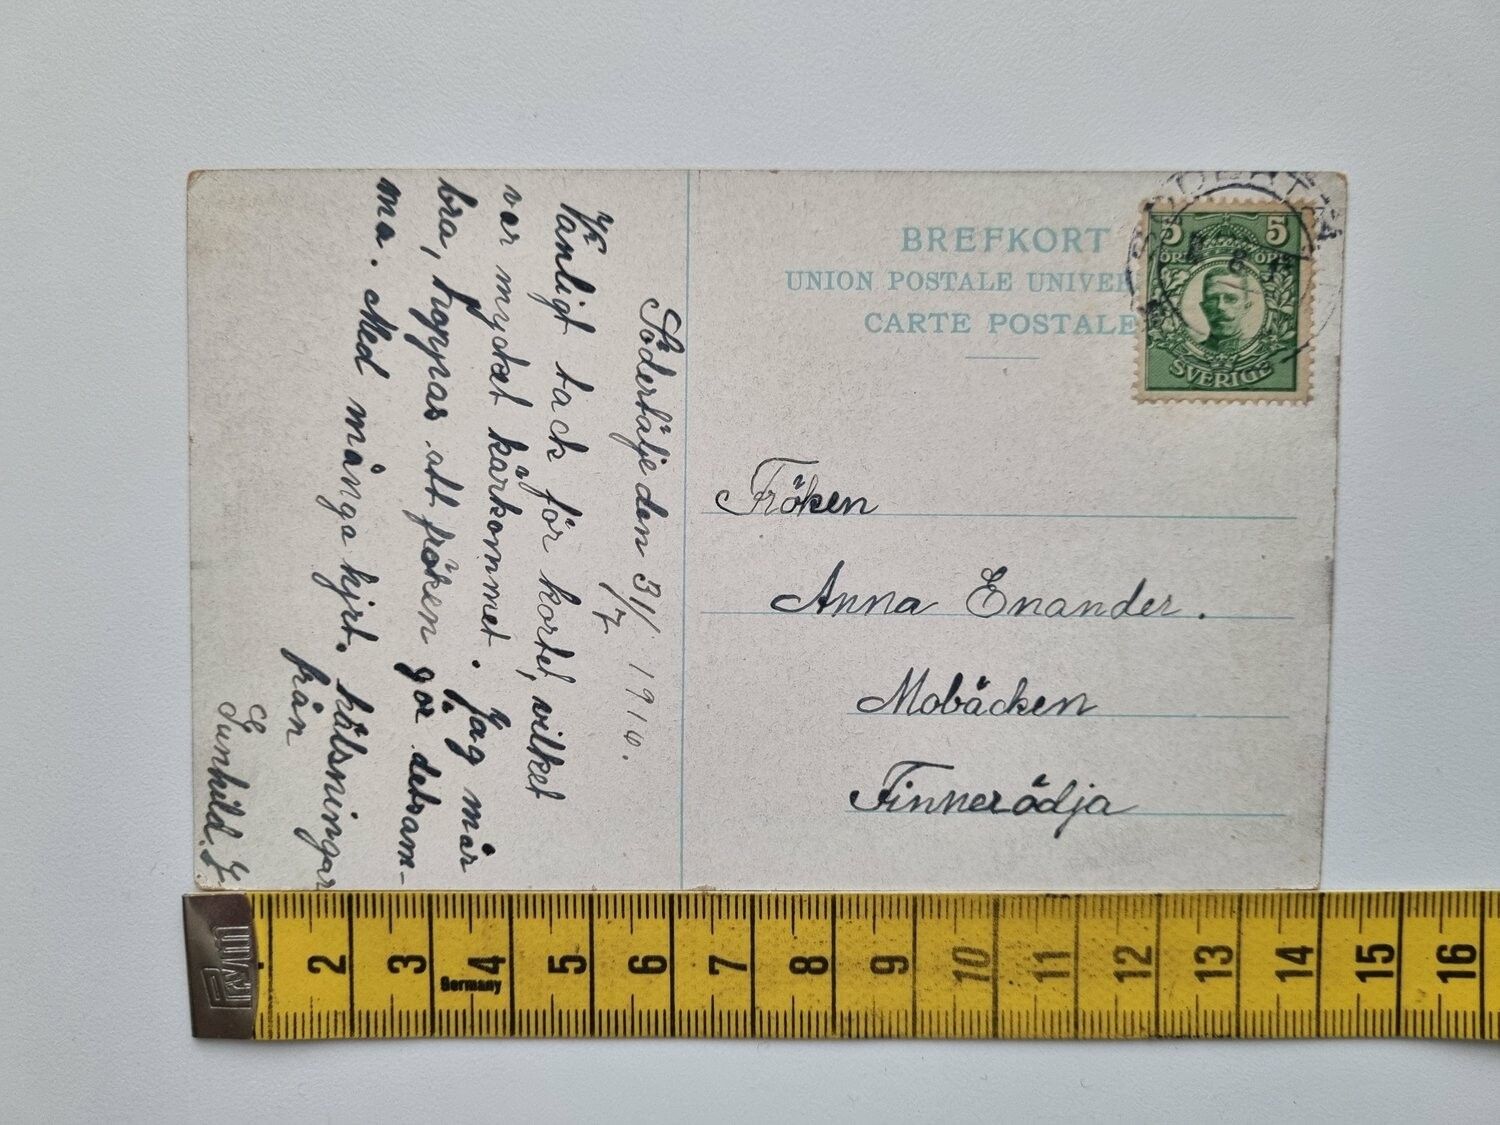 BREFKORT
UNION POSTALE UNIVER
CARTE POSTALE
5 5
ÖRE
SVERIGE
Södertälje den 31/7 1916.
Vänligt tack för kortet, vilket
var mycket kärkommet. Jag mår
bra, hoppas att fröken gör detsam-
ma. Med många hjrt. hälsningar
från
Gunhild. J
Fröken
Anna Enander.
Mobäcken
Finnerödja
Prym
2 3 4 5 6 7 8 9 10 11 12 13 14 15 16
Germany